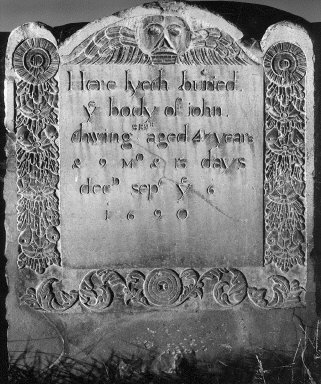 Here lyeth buried
yᵉ body of iohn
chwing aged 4 years
& 9 Mᵒ & 15 days
decᵈ sepᵗ yᵉ 6
1690